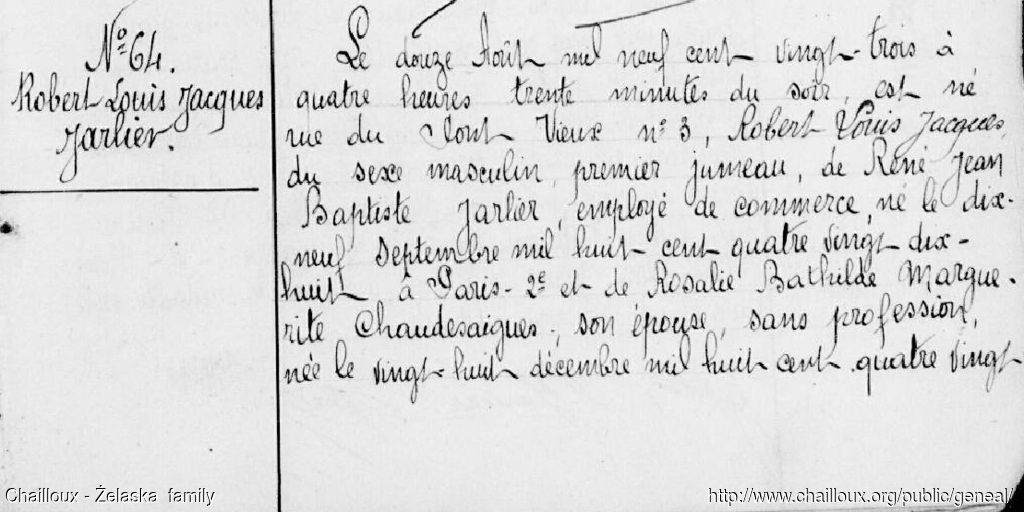 Nº 64.
Robert Louis Jacques
Jarlier.
Le douze Août mil neuf cent vingt-trois à
quatre heures trente minutes du soir, est né
rue du Pont Vieux nº 3, Robert Louis Jacques,
du sexe masculin, premier jumeau, de René Jean
Baptiste Jarlier, employé de commerce, né le dix-
neuf septembre mil huit cent quatre vingt dix-
huit à Paris-2e et de Rosalie Bathilde Margue-
rite Chaudesaigues, son épouse, sans profession,
née le vingt-huit décembre mil huit cent quatre vingt
Chailloux - Żelaska family
http://www.chailloux.org/public/geneal/